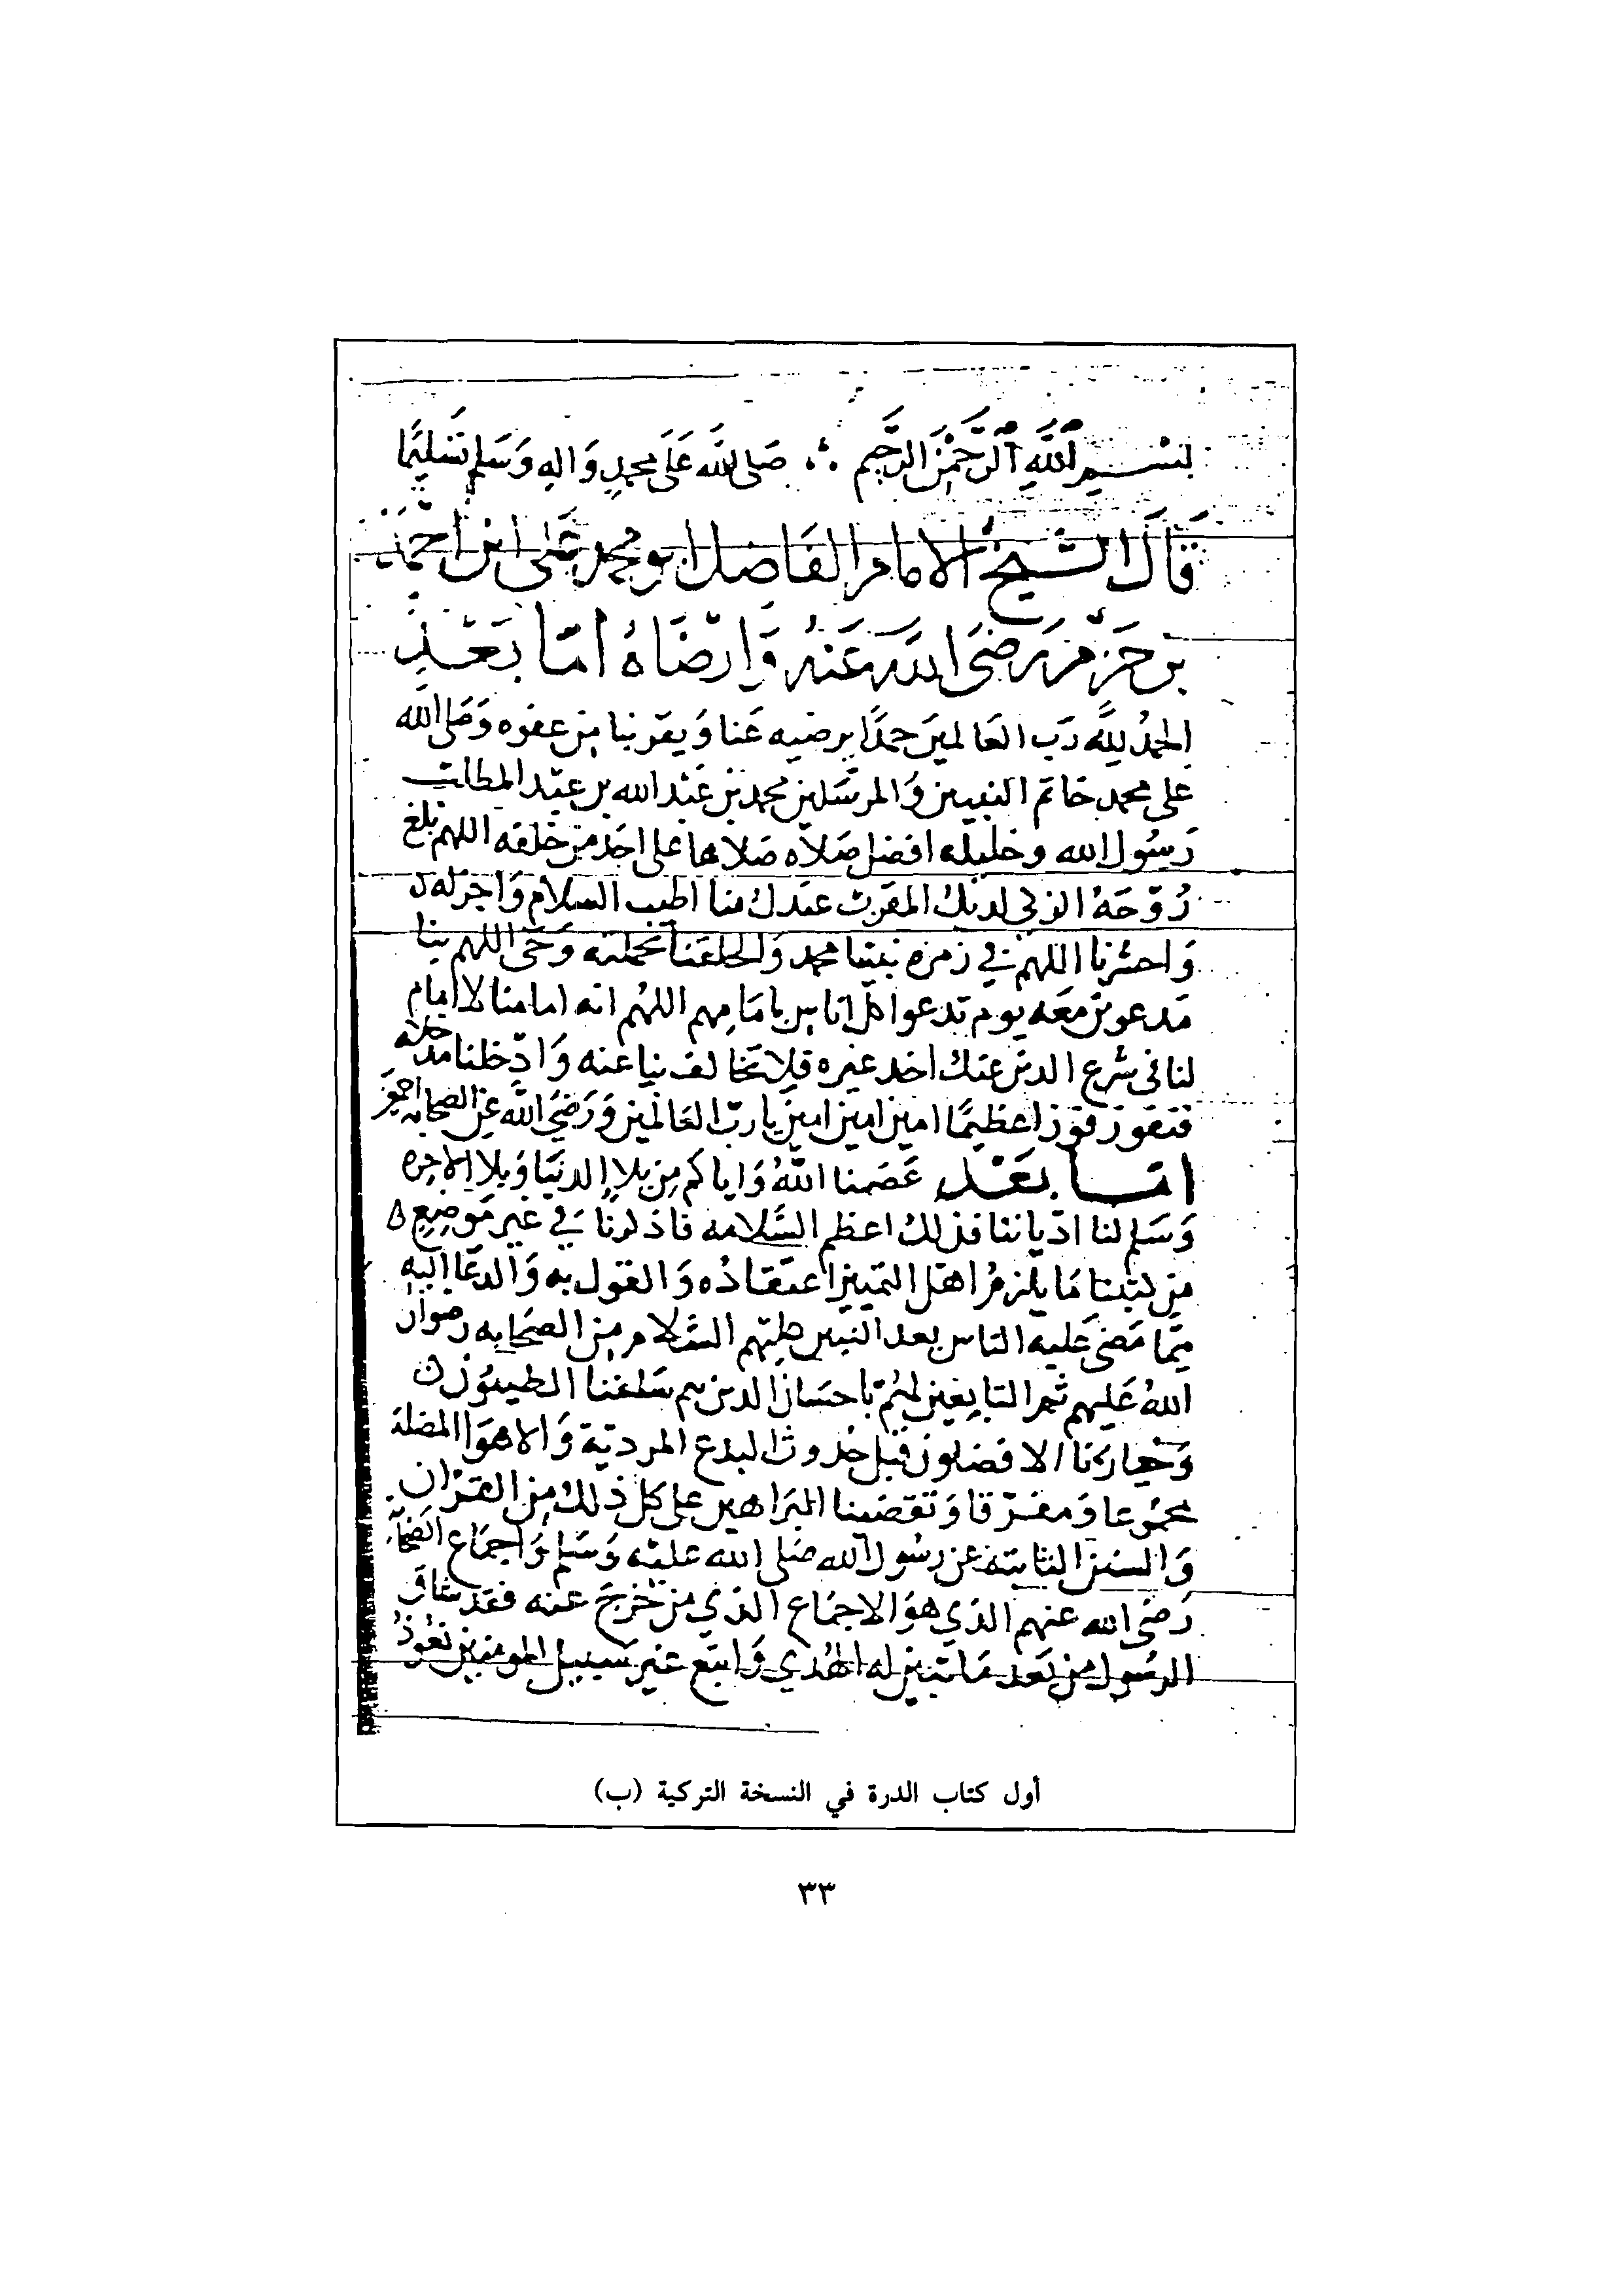 بِسْمِ اللَّهِ الرَّحْمَنِ الرَّحِيم صَلى اللَّه عَلَى محمدٍ وَالهِ وَسَلم تَسْليمًا
قَالَ الشَّيخُ الامَام الفَاضل ابو محمد عَلى ابن احمَد
بن حَزم رَضىَ اللهَ عَنهُ وَارضَاهُ امَّا بَعْد
الحمْدُ لِلَّه رَبّ العَالمينَ حمدًا يرضيه عَنا وَيقربنا مِن عفوه وَصَلى اللَّه
على محمد خَاتم النبيين وَالمرسَلين محمد بن عَبْد الله بن عبْد المطلب
رَسُول الله وخليله افضل صَلاه صَلاها على احَد من خلقه اللهم بَلغ
رُوحَهُ الزكي لديك المقرب عندك منا اطيب السلام وَاجز له
وَاحشرنا اللهُمّ في زمره نبينا محمد وَ وَحَى اللهم بنا
مَدعوين مَعَه يوم تدعوا كلّ اناس بامَامهم اللهُم انه امامنا لا امام
لنا فى شرع الدين عنك احد غيره فلا تخالف بنا عنه وَادخلنا مدخله
فنفوز فوزا عظيمًا امين امين امين يارب العَالمين وَرَضيَ اللَّه عن الصحابه اجمعين
امّا بعَد عَصَمنا اللَّهُ وَاياكم مِن بلا الدنيَا وَبلا الاخِره
وَسَلم لنا اديَاننا فذلك اعظم السَّلامه فاذكرنا في غير مَوضع
من كتبنا مَا يلزمُ اهل التمييز اعتقادُه وَالقول به وَالدعَا اليه
مِمّا مَضى عَليه الناس بعد النبيين عليهم السَّلام من الصحَابه رضوان
اللهُ عَليهم ثم التابعين لهُم باحسَان الدين هم سَلفنا الطيبوُن
وَخيارنا الافضلون قبل حُدوث البدع المرديَة وَالاهوَا المضلة
مجموعا وَمفترقا وَتقصّينا البَراهين على كل ذلك مِن القرْان
وَالسنن الثابتة عن رسُول الله صَلى الله عليْه وَسَلم وَاجماع الصحَابَة
رَضى الله عنهم الذي هوَ الاجماع الذي من خَرجَ عنه فقد شاق
الرسُول من بَعد مَا تبين له الهدي وَاتبع غير سَبيل المومنين نعُوذ
أول كتاب الدرة في النسخة التركية (ب)
٣٣